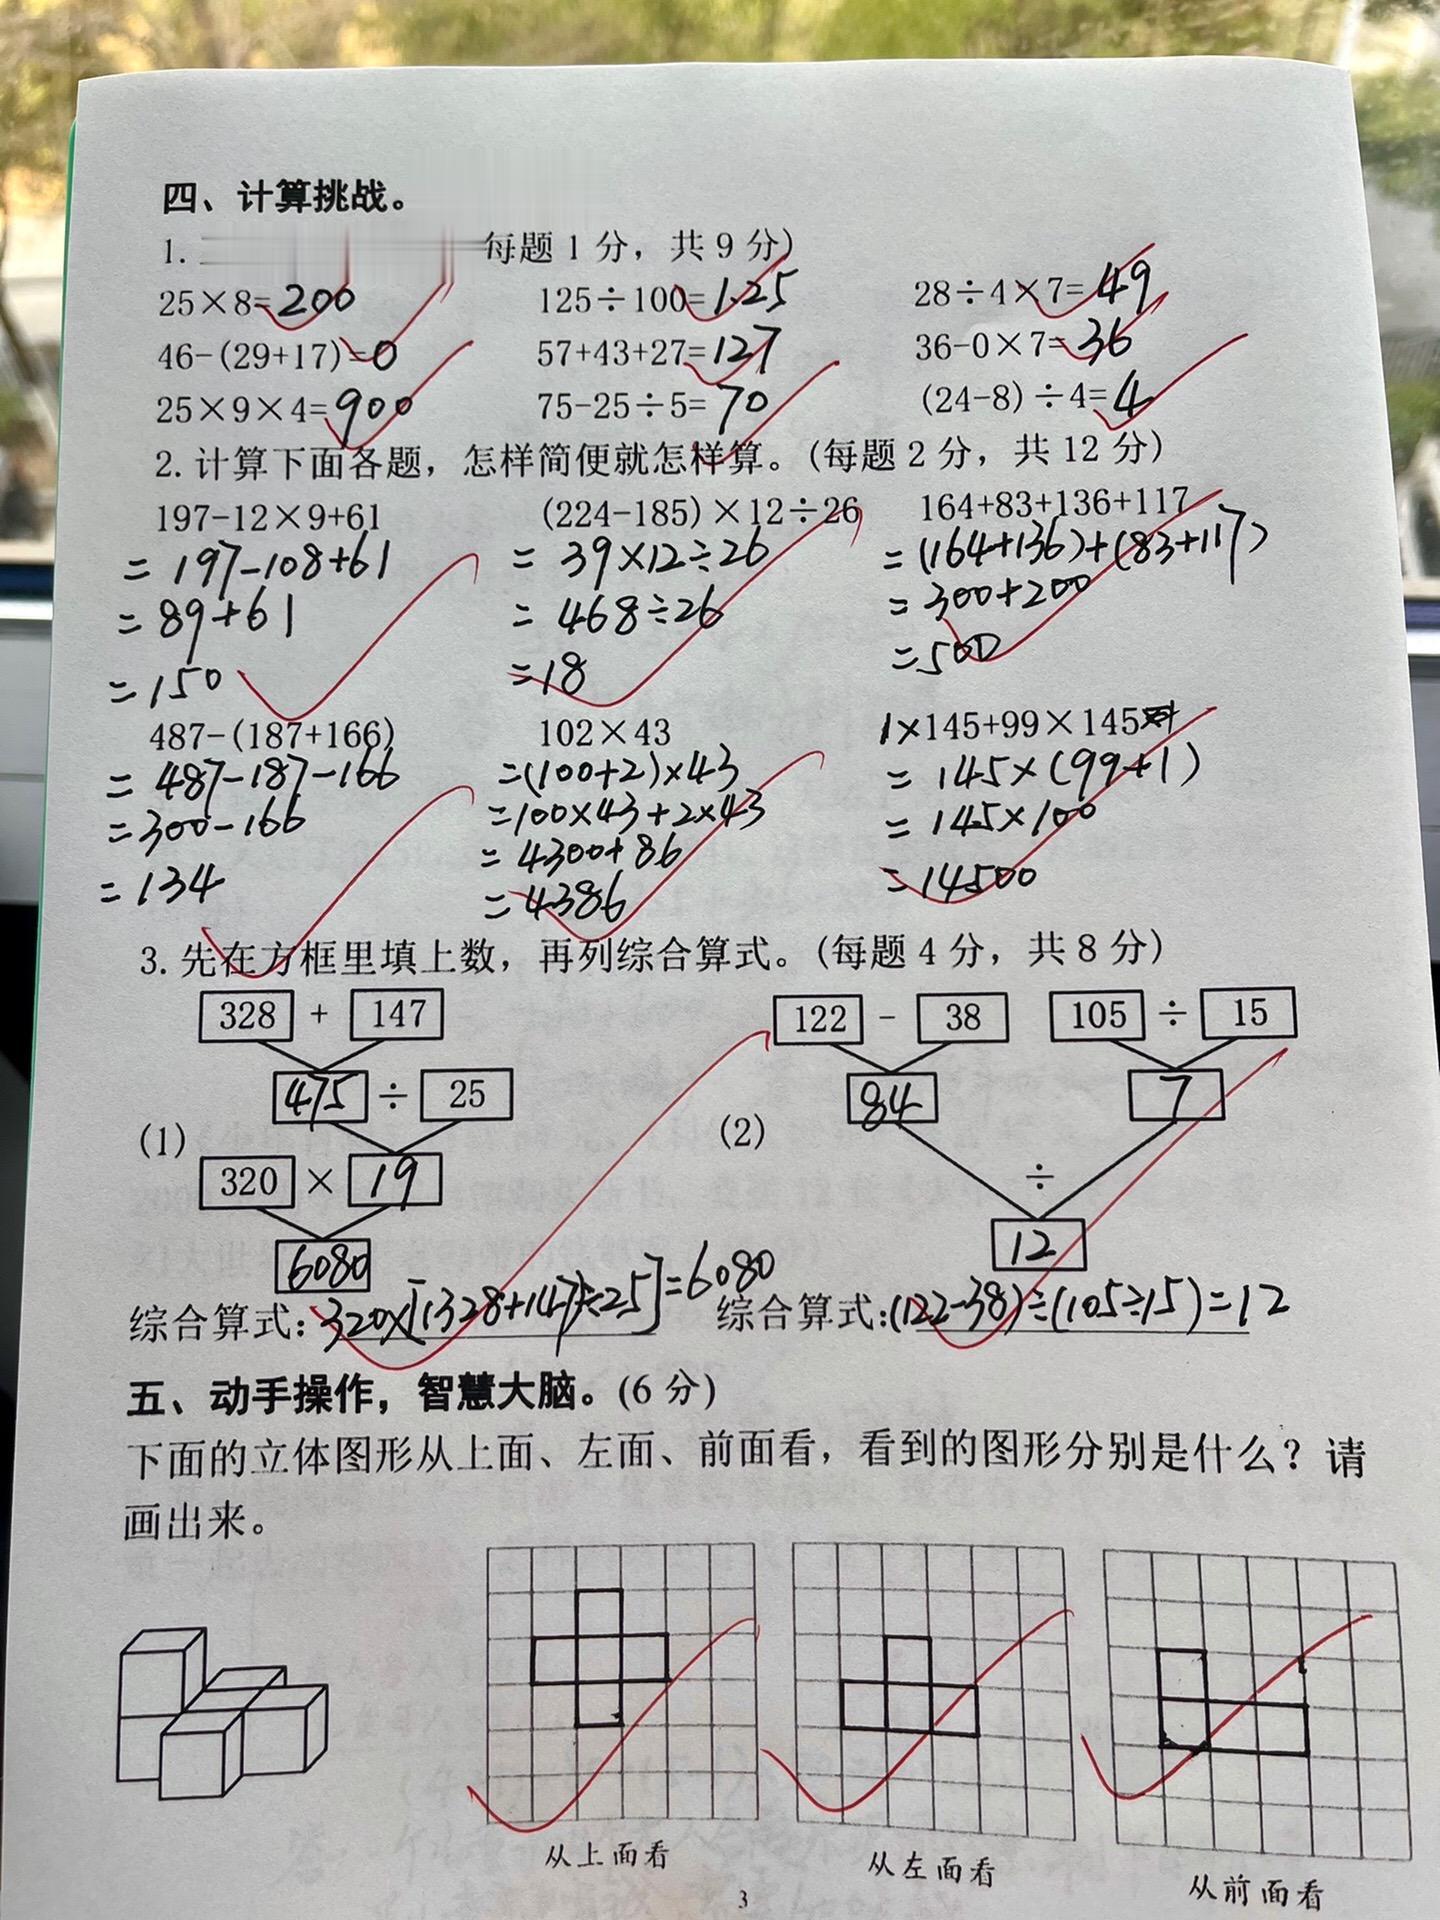 四、计算挑战。
1. 每题 1 分，共 9 分)
25×8=200 125÷100=1.25 28÷4×7=49
46-(29+17)=0 57+43+27=127 36-0×7=36
25×9×4=900 75-25÷5=70 (24-8)÷4=4
2. 计算下面各题，怎样简便就怎样算。(每题 2 分，共 12 分)
197-12×9+61 (224-185)×12÷26 164+83+136+117
=197-108+61 =39×12÷26 =(164+136)+(83+117)
=89+61 =468÷26 =300+200
=150 =18 =500
487-(187+166) 102×43 1×145+99×145
=487-187-166 =(100+2)×43 =145×(99+1)
=300-166 =100×43+2×43 =145×100
=134 =4300+86 =14500
=4386
3. 先在方框里填上数，再列综合算式。(每题 4 分，共 8 分)
328 + 147 122 - 38 105 ÷ 15
475 ÷ 25 84 7
(1) (2)
320 × 19 ÷
6080 12
综合算式：320×[(328+147)÷25]=6080 综合算式：(122-38)÷(105÷15)=12
五、动手操作，智慧大脑。(6 分)
下面的立体图形从上面、左面、前面看，看到的图形分别是什么？请
画出来。
从上面看 从左面看 从前面看
3